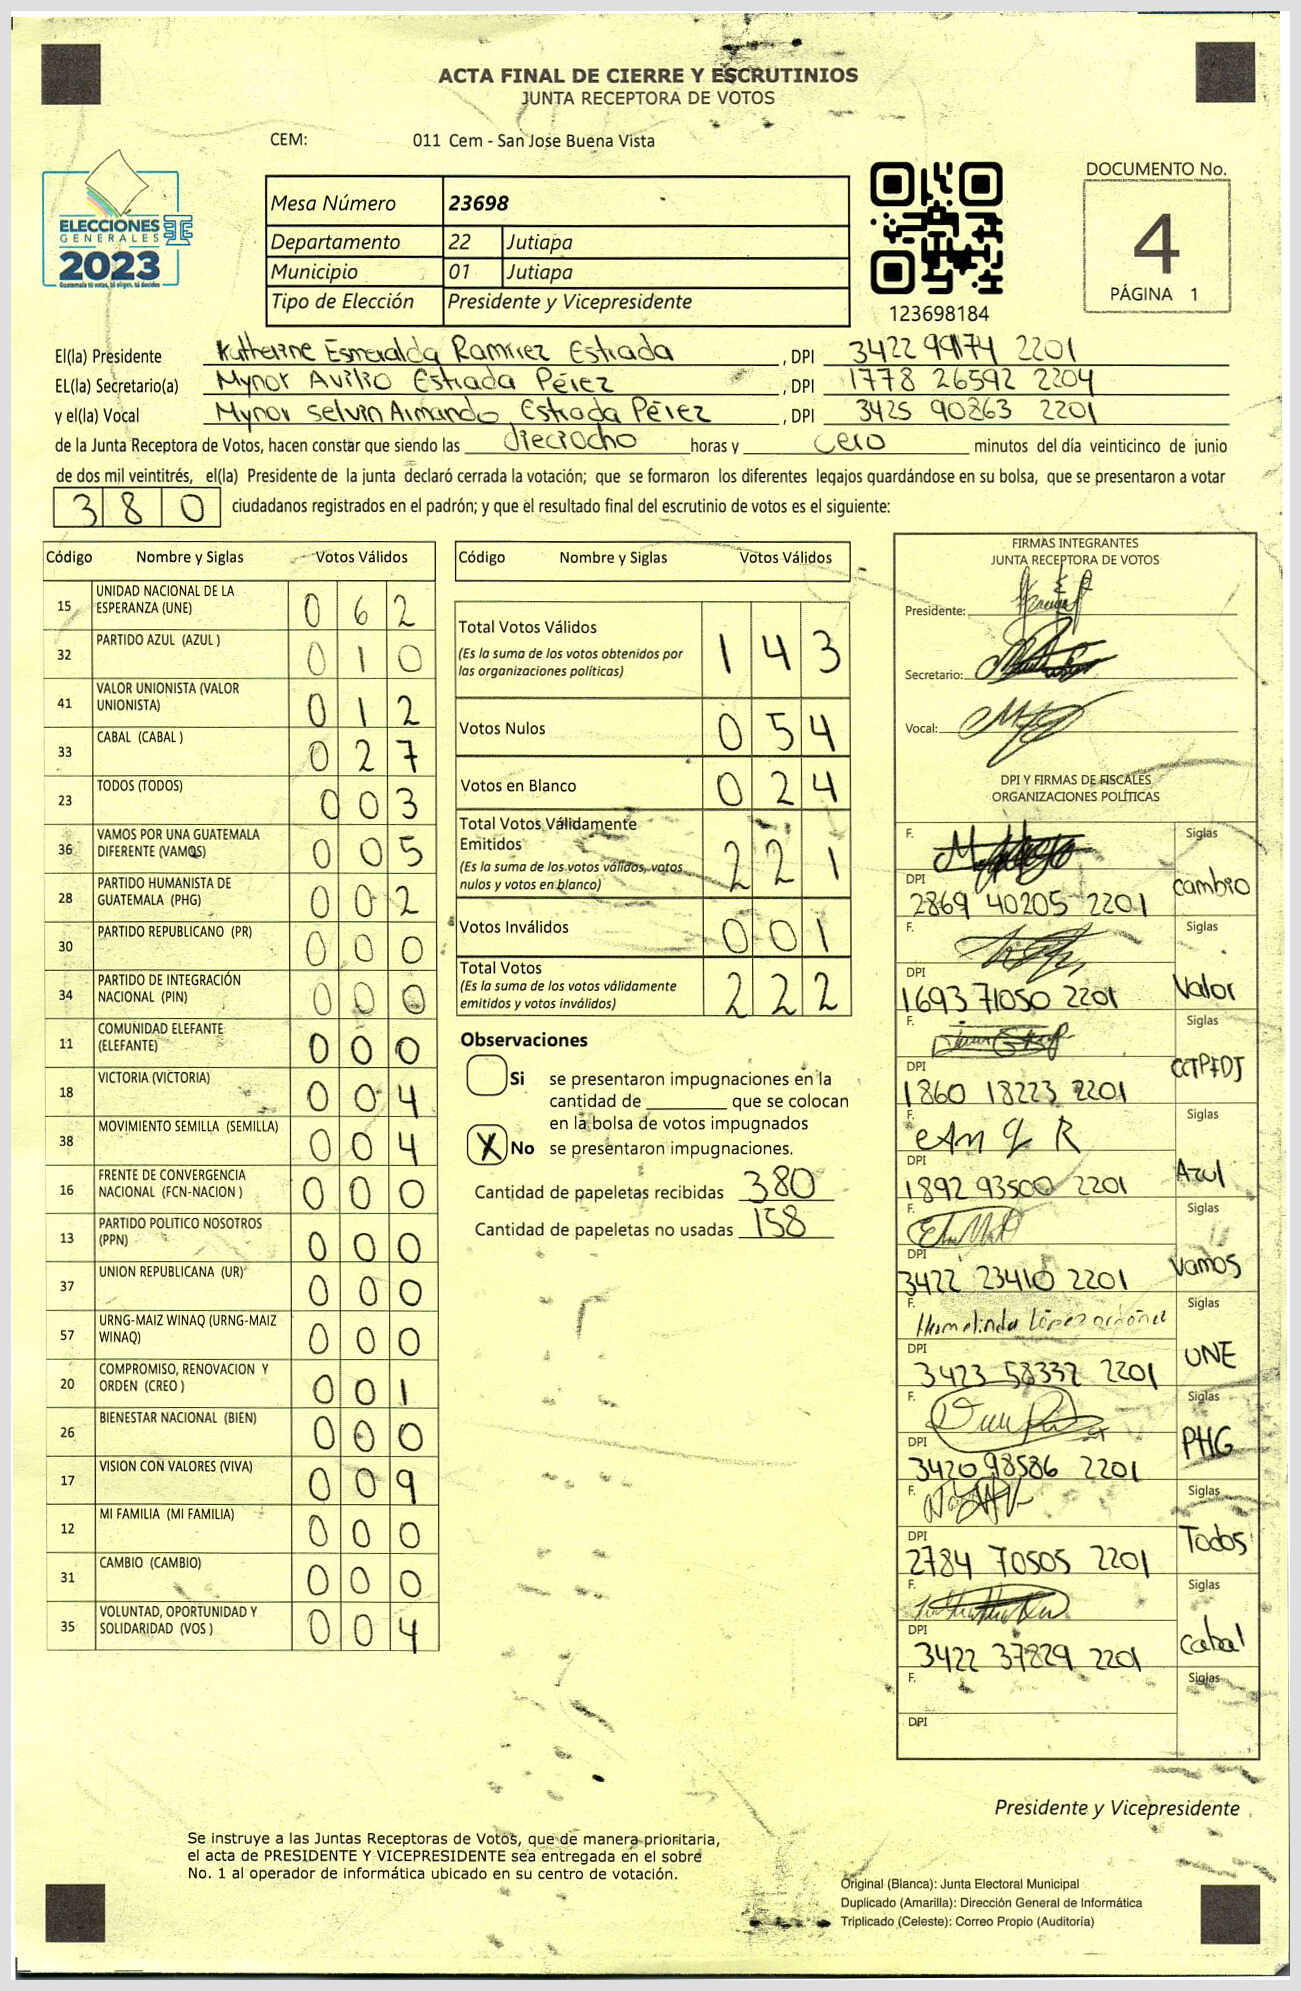 ACTA FINAL DE CIERRE Y ESCRUTINIOS
JUNTA RECEPTORA DE VOTOS
CEM: 011 Cem - San Jose Buena Vista
ELECCIONES
GENERALES
2023
Guatemala tú votas, tú eliges, tú decides
Mesa Número 23698
Departamento 22 Jutiapa
Municipio 01 Jutiapa
Tipo de Elección Presidente y Vicepresidente
123698184
DOCUMENTO No.
4
PÁGINA 1
El(la) Presidente Katherine Esmeralda Ramirez Estrada, DPI 3422 99174 2201
EL(la) Secretario(a) Mynor Avilio Estrada Pérez, DPI 1778 26592 2204
y el(la) Vocal Mynor Selvin Armando Estrada Pérez, DPI 3425 90863 2201
de la Junta Receptora de Votos, hacen constar que siendo las dieciocho horas y cero minutos del día veinticinco de junio
de dos mil veintitrés, el(la) Presidente de la junta declaró cerrada la votación; que se formaron los diferentes legajos guardándose en su bolsa, que se presentaron a votar
380 ciudadanos registrados en el padrón; y que el resultado final del escrutinio de votos es el siguiente:
Código Nombre y Siglas Votos Válidos
15 UNIDAD NACIONAL DE LA ESPERANZA (UNE) 062
32 PARTIDO AZUL (AZUL ) 010
41 VALOR UNIONISTA (VALOR UNIONISTA) 012
33 CABAL (CABAL ) 027
23 TODOS (TODOS) 003
36 VAMOS POR UNA GUATEMALA DIFERENTE (VAMOS) 005
28 PARTIDO HUMANISTA DE GUATEMALA (PHG) 002
30 PARTIDO REPUBLICANO (PR) 000
34 PARTIDO DE INTEGRACIÓN NACIONAL (PIN) 000
11 COMUNIDAD ELEFANTE (ELEFANTE) 000
18 VICTORIA (VICTORIA) 004
38 MOVIMIENTO SEMILLA (SEMILLA) 004
16 FRENTE DE CONVERGENCIA NACIONAL (FCN-NACION ) 000
13 PARTIDO POLITICO NOSOTROS (PPN) 000
37 UNION REPUBLICANA (UR) 000
57 URNG-MAIZ WINAQ (URNG-MAIZ WINAQ) 000
20 COMPROMISO, RENOVACION Y ORDEN (CREO ) 001
26 BIENESTAR NACIONAL (BIEN) 000
17 VISION CON VALORES (VIVA) 009
12 MI FAMILIA (MI FAMILIA) 000
31 CAMBIO (CAMBIO) 000
35 VOLUNTAD, OPORTUNIDAD Y SOLIDARIDAD (VOS ) 004
Código Nombre y Siglas Votos Válidos
Total Votos Válidos 143
(Es la suma de los votos obtenidos por
las organizaciones políticas)
Votos Nulos 054
Votos en Blanco 024
Total Votos Válidamente
Emitidos 221
(Es la suma de los votos válidos, votos
nulos y votos en blanco)
Votos Inválidos 001
Total Votos 222
(Es la suma de los votos válidamente
emitidos y votos inválidos)
Observaciones
Si se presentaron impugnaciones en la
cantidad de ________ que se colocan
en la bolsa de votos impugnados
X No se presentaron impugnaciones.
Cantidad de papeletas recibidas 380
Cantidad de papeletas no usadas 158
FIRMAS INTEGRANTES
JUNTA RECEPTORA DE VOTOS
Presidente:
Secretario:
Vocal:
DPI Y FIRMAS DE FISCALES
ORGANIZACIONES POLÍTICAS
F. Siglas
DPI 2869 40205 2201 cambio
F. Siglas
DPI 1693 71050 2201 Valor
F. Siglas
DPI 1860 18223 2201
F. Siglas
DPI 1892 93500 2201 Azul
F. Siglas
DPI 3422 23410 2201 Vamos
F. Siglas
DPI 3423 58332 2201 UNE
F. Siglas
DPI 3420 98586 2201 PHG
F. Siglas
DPI 2784 70505 2201 Todos
F. Siglas
DPI 3422 37829 2201 cabal
F. Siglas
DPI
Presidente y Vicepresidente
Se instruye a las Juntas Receptoras de Votos, que de manera prioritaria,
el acta de PRESIDENTE Y VICEPRESIDENTE sea entregada en el sobre
No. 1 al operador de informática ubicado en su centro de votación.
Original (Blanca): Junta Electoral Municipal
Duplicado (Amarilla): Dirección General de Informática
Triplicado (Celeste): Correo Propio (Auditoría)